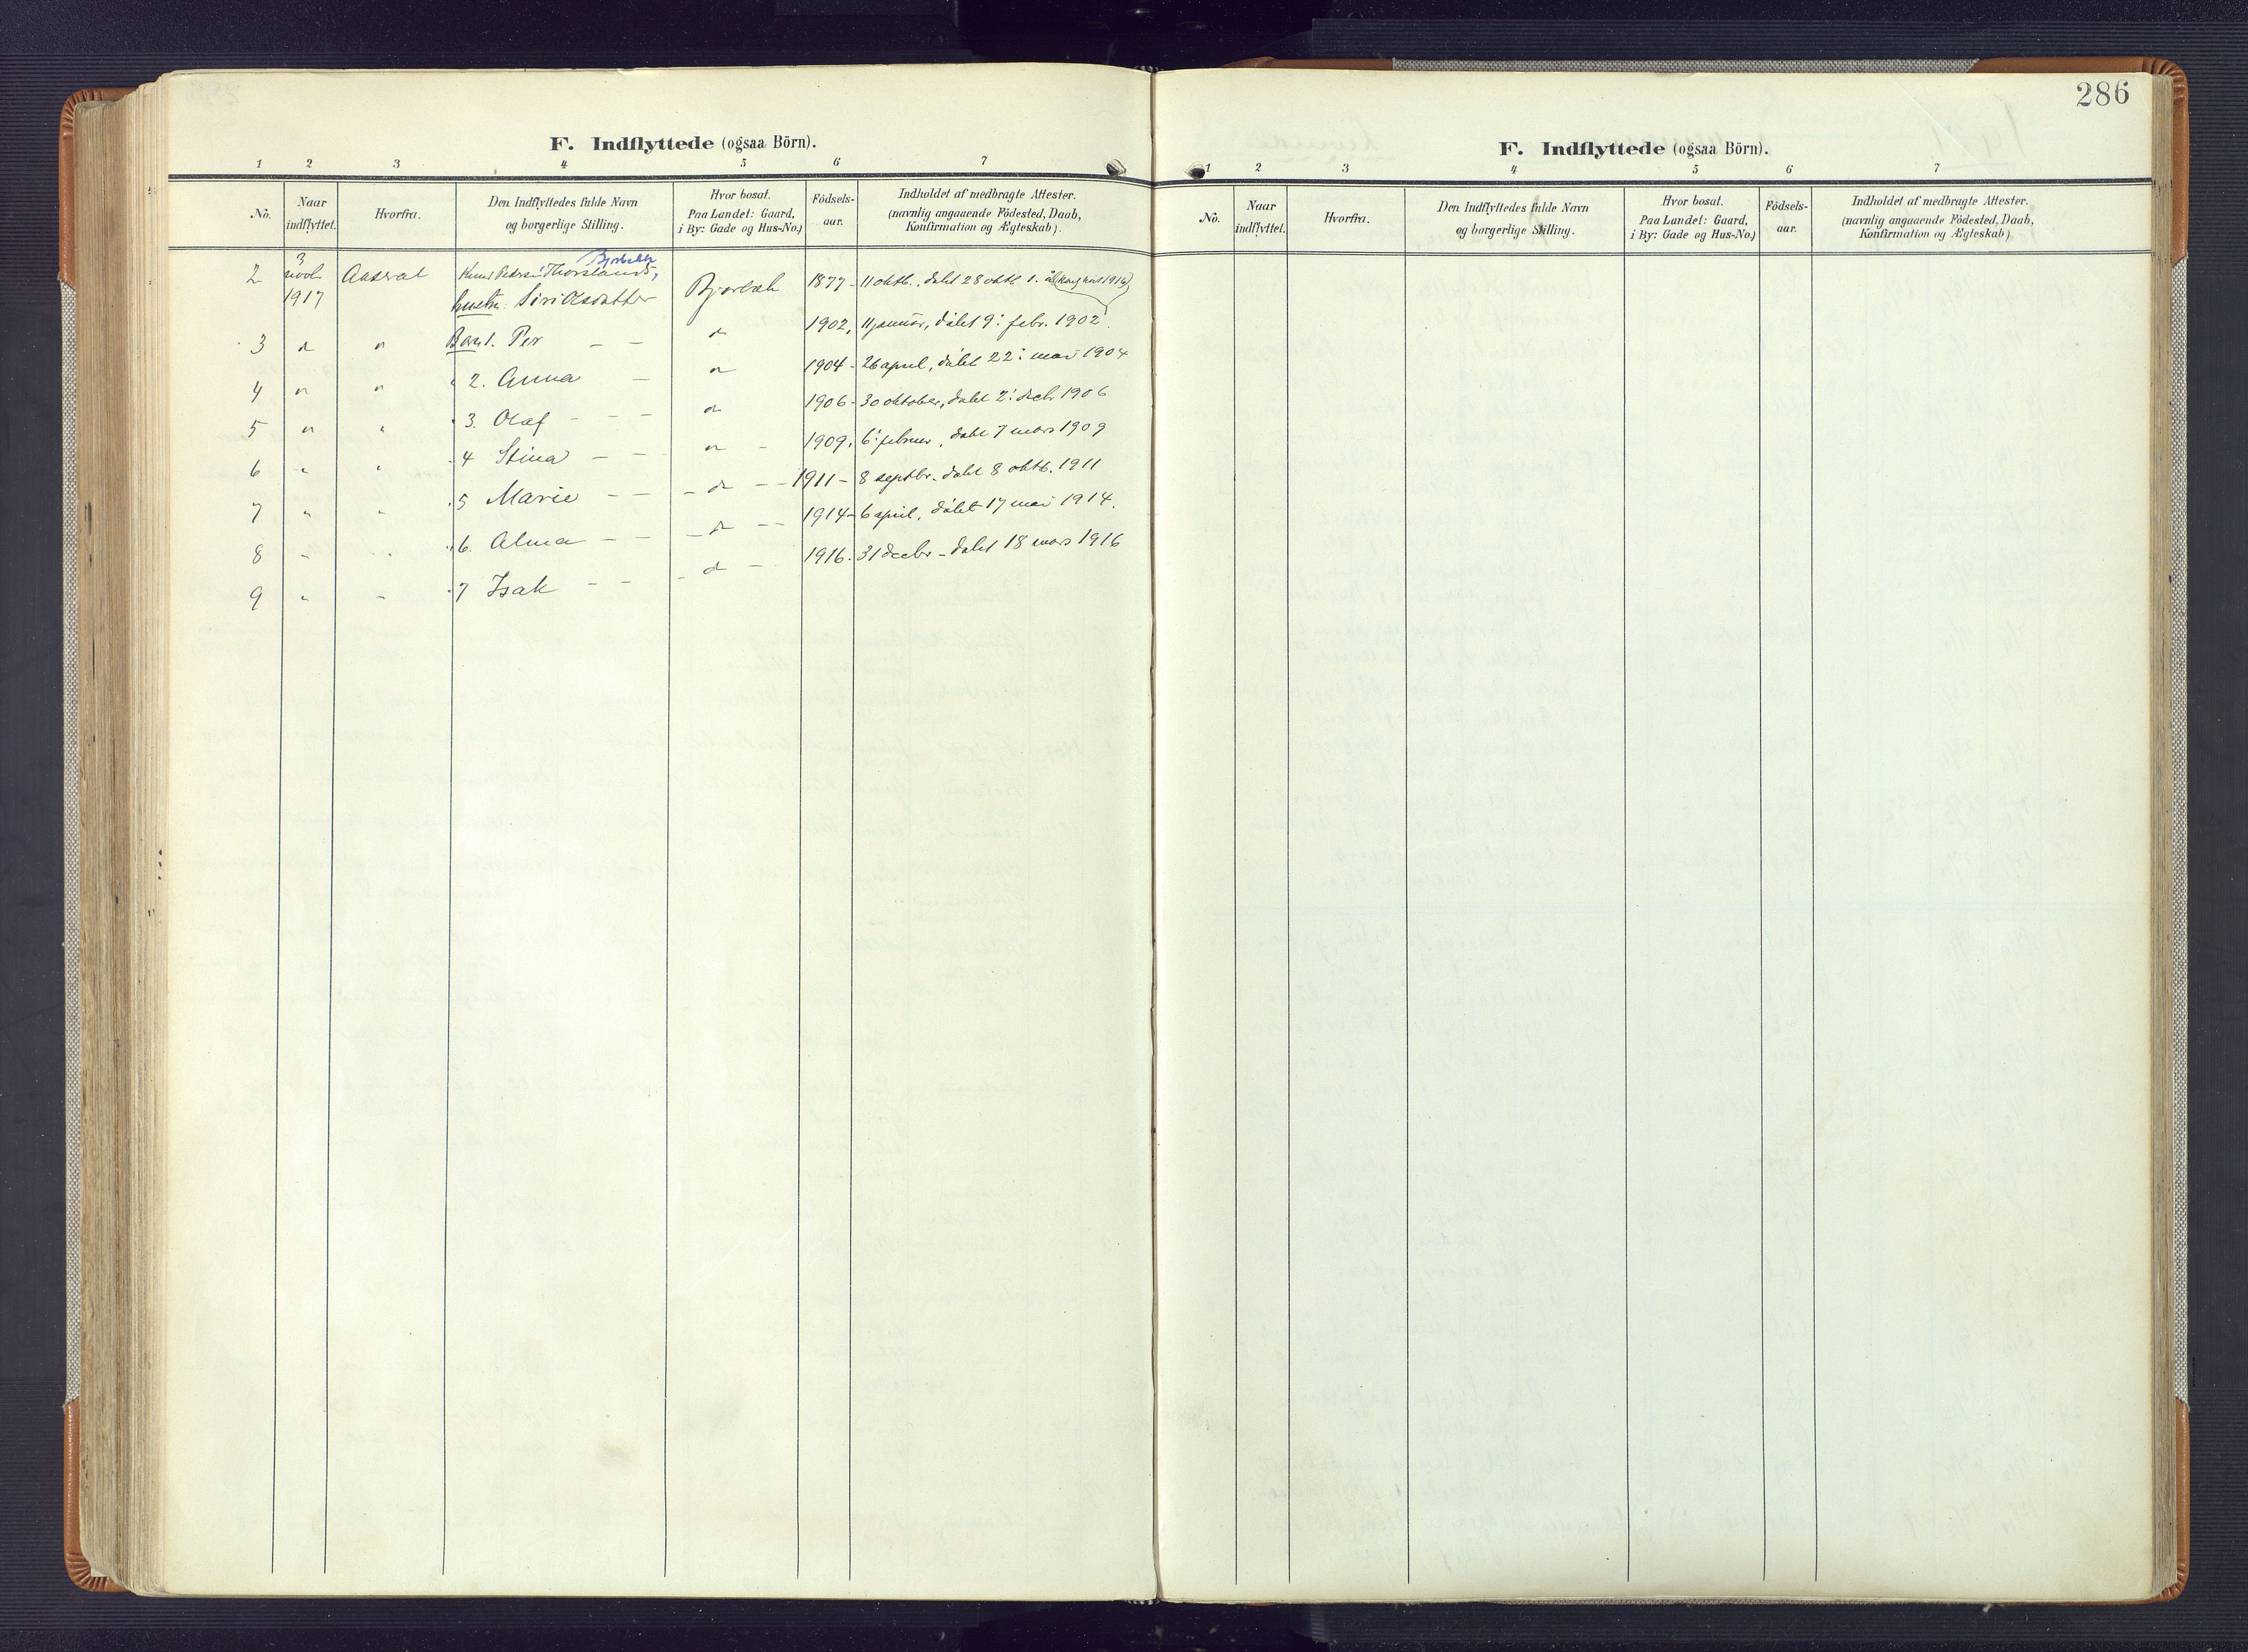 286
F. Indflyttede (ogsaa Börn).
1 2 3 4 5 6 7
No. Naar indflyttet. Hvorfra. Den Indflyttedes fulde Navn og borgerlige Stilling. Hvor bosat. Paa Landet: Gaard, i By: Gade og Hus-No.) Födsels-aar. Indholdet af medbragte Attester. (navnlig angaaende Födested, Daab, Konfirmation og Ægteskab).
Bjorbekk
2 3 novbr 1917 Knud Thorsland, Bjorbek 1877 - 11 oktb., døbt 28 oktb. s. å.
hustru Siri Olsdatter
3 Barn 1. Per 1902, 11 januar, døbt 9: febr. 1902.
4 2. Anna 1904 - 26 april, døbt 22: mai 1904
5 3. Olaf 1906 - 30 oktober, døbt 2: decbr 1906
6 4 Stina 1909, 6: februar, døbt 7 mars 1909
7 5 Marie 1911 - 8 septbr. døbt 8 oktb. 1911
8 6. Alma 1914 - 6 april, døbt 17 mai 1914.
9 7 Isak 1916. 31 decbr - døbt 18 mars 1916
F. Indflyttede (ogsaa Börn).
1 2 3 4 5 6 7
No. Naar indflyttet. Hvorfra. Den Indflyttedes fulde Navn og borgerlige Stilling. Hvor bosat. Paa Landet: Gaard, i By: Gade og Hus-No.) Födsels-aar. Indholdet af medbragte Attester. (navnlig angaaende Födested, Daab, Konfirmation og Ægteskab)